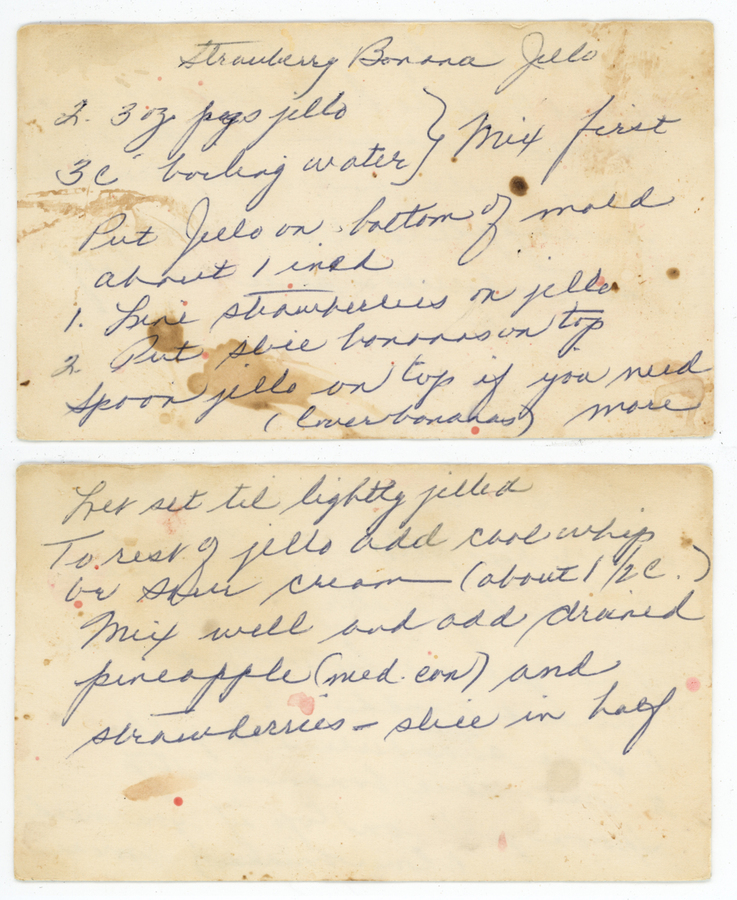 Strawberry Banana Jello
2. 3 oz pkgs jello } Mix first
3 C boiling water
Put Jello on bottom of mold
about 1 inch
1. Line strawberries on jello
2. Put slice bananas on top
Spoon jello on top if you need
(cover bananas) more
Let set til lightly jelled
To rest of jello add cool whip
or sour cream — (about 1 1/2 C.)
Mix well and add drained
pineapple (med. can) and
strawberries - slice in half